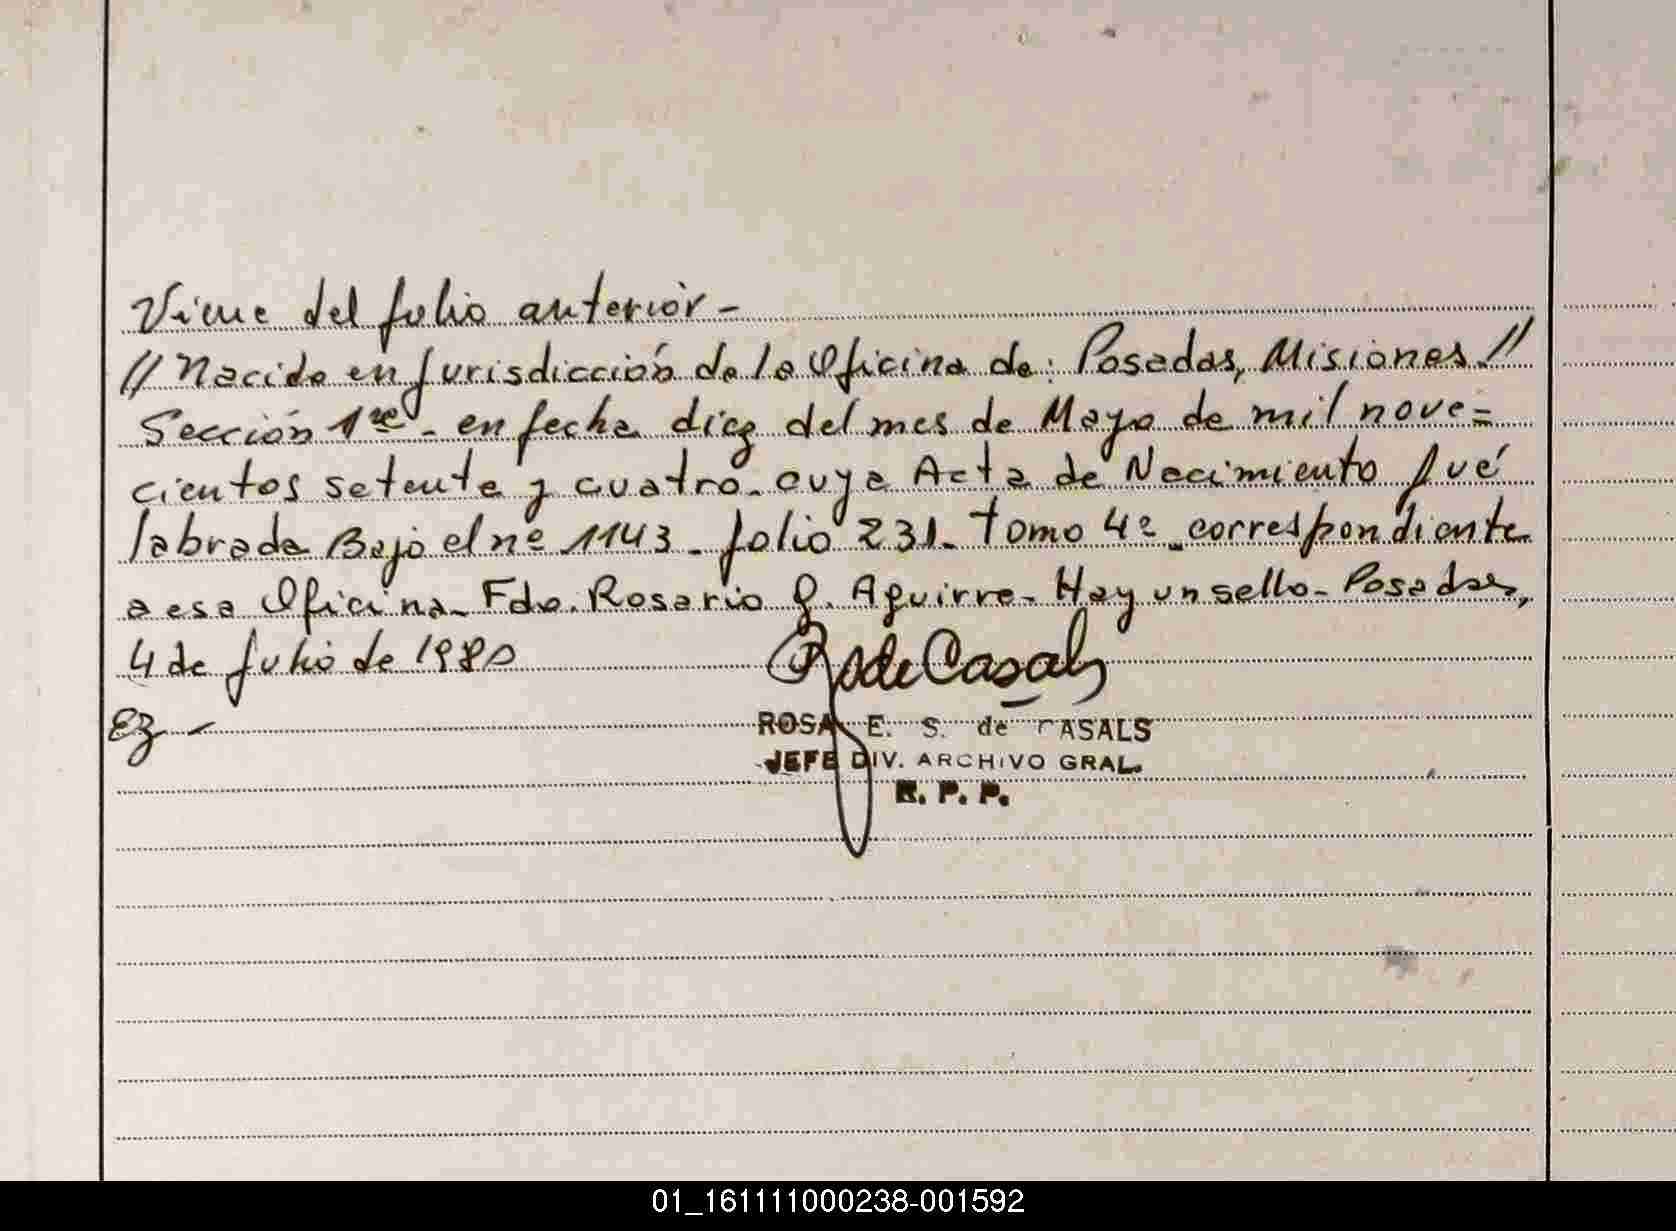 Viene del folio anterior-
// Nacido en Jurisdicción de la Oficina de: Posadas, Misiones //
Sección 1ra - en fecha diez del mes de Mayo de mil nove=
cientos setenta y cuatro. cuya Acta de Nacimiento fué
labrada Bajo el nº 1143 - folio 231 - tomo 4º - correspondiente
a esa Oficina - Fdo. Rosario G. Aguirre - Hay un sello - Posadas,
4 de Julio de 1980
Ez -
R de Casals
ROSA E. S. de CASALS
JEFE DIV. ARCHIVO GRAL.
R. P. P.
01_161111000238-001592